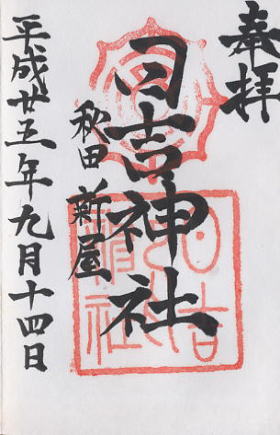 奉拝
日吉神社
秋田新屋
平成廿五年九月十四日
日吉神社